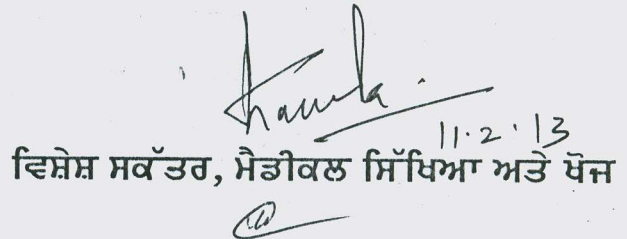 11.2.13
ਵਿਸ਼ੇਸ਼ ਸਕੱਤਰ, ਮੈਡੀਕਲ ਸਿੱਖਿਆ ਅਤੇ ਖੋਜ